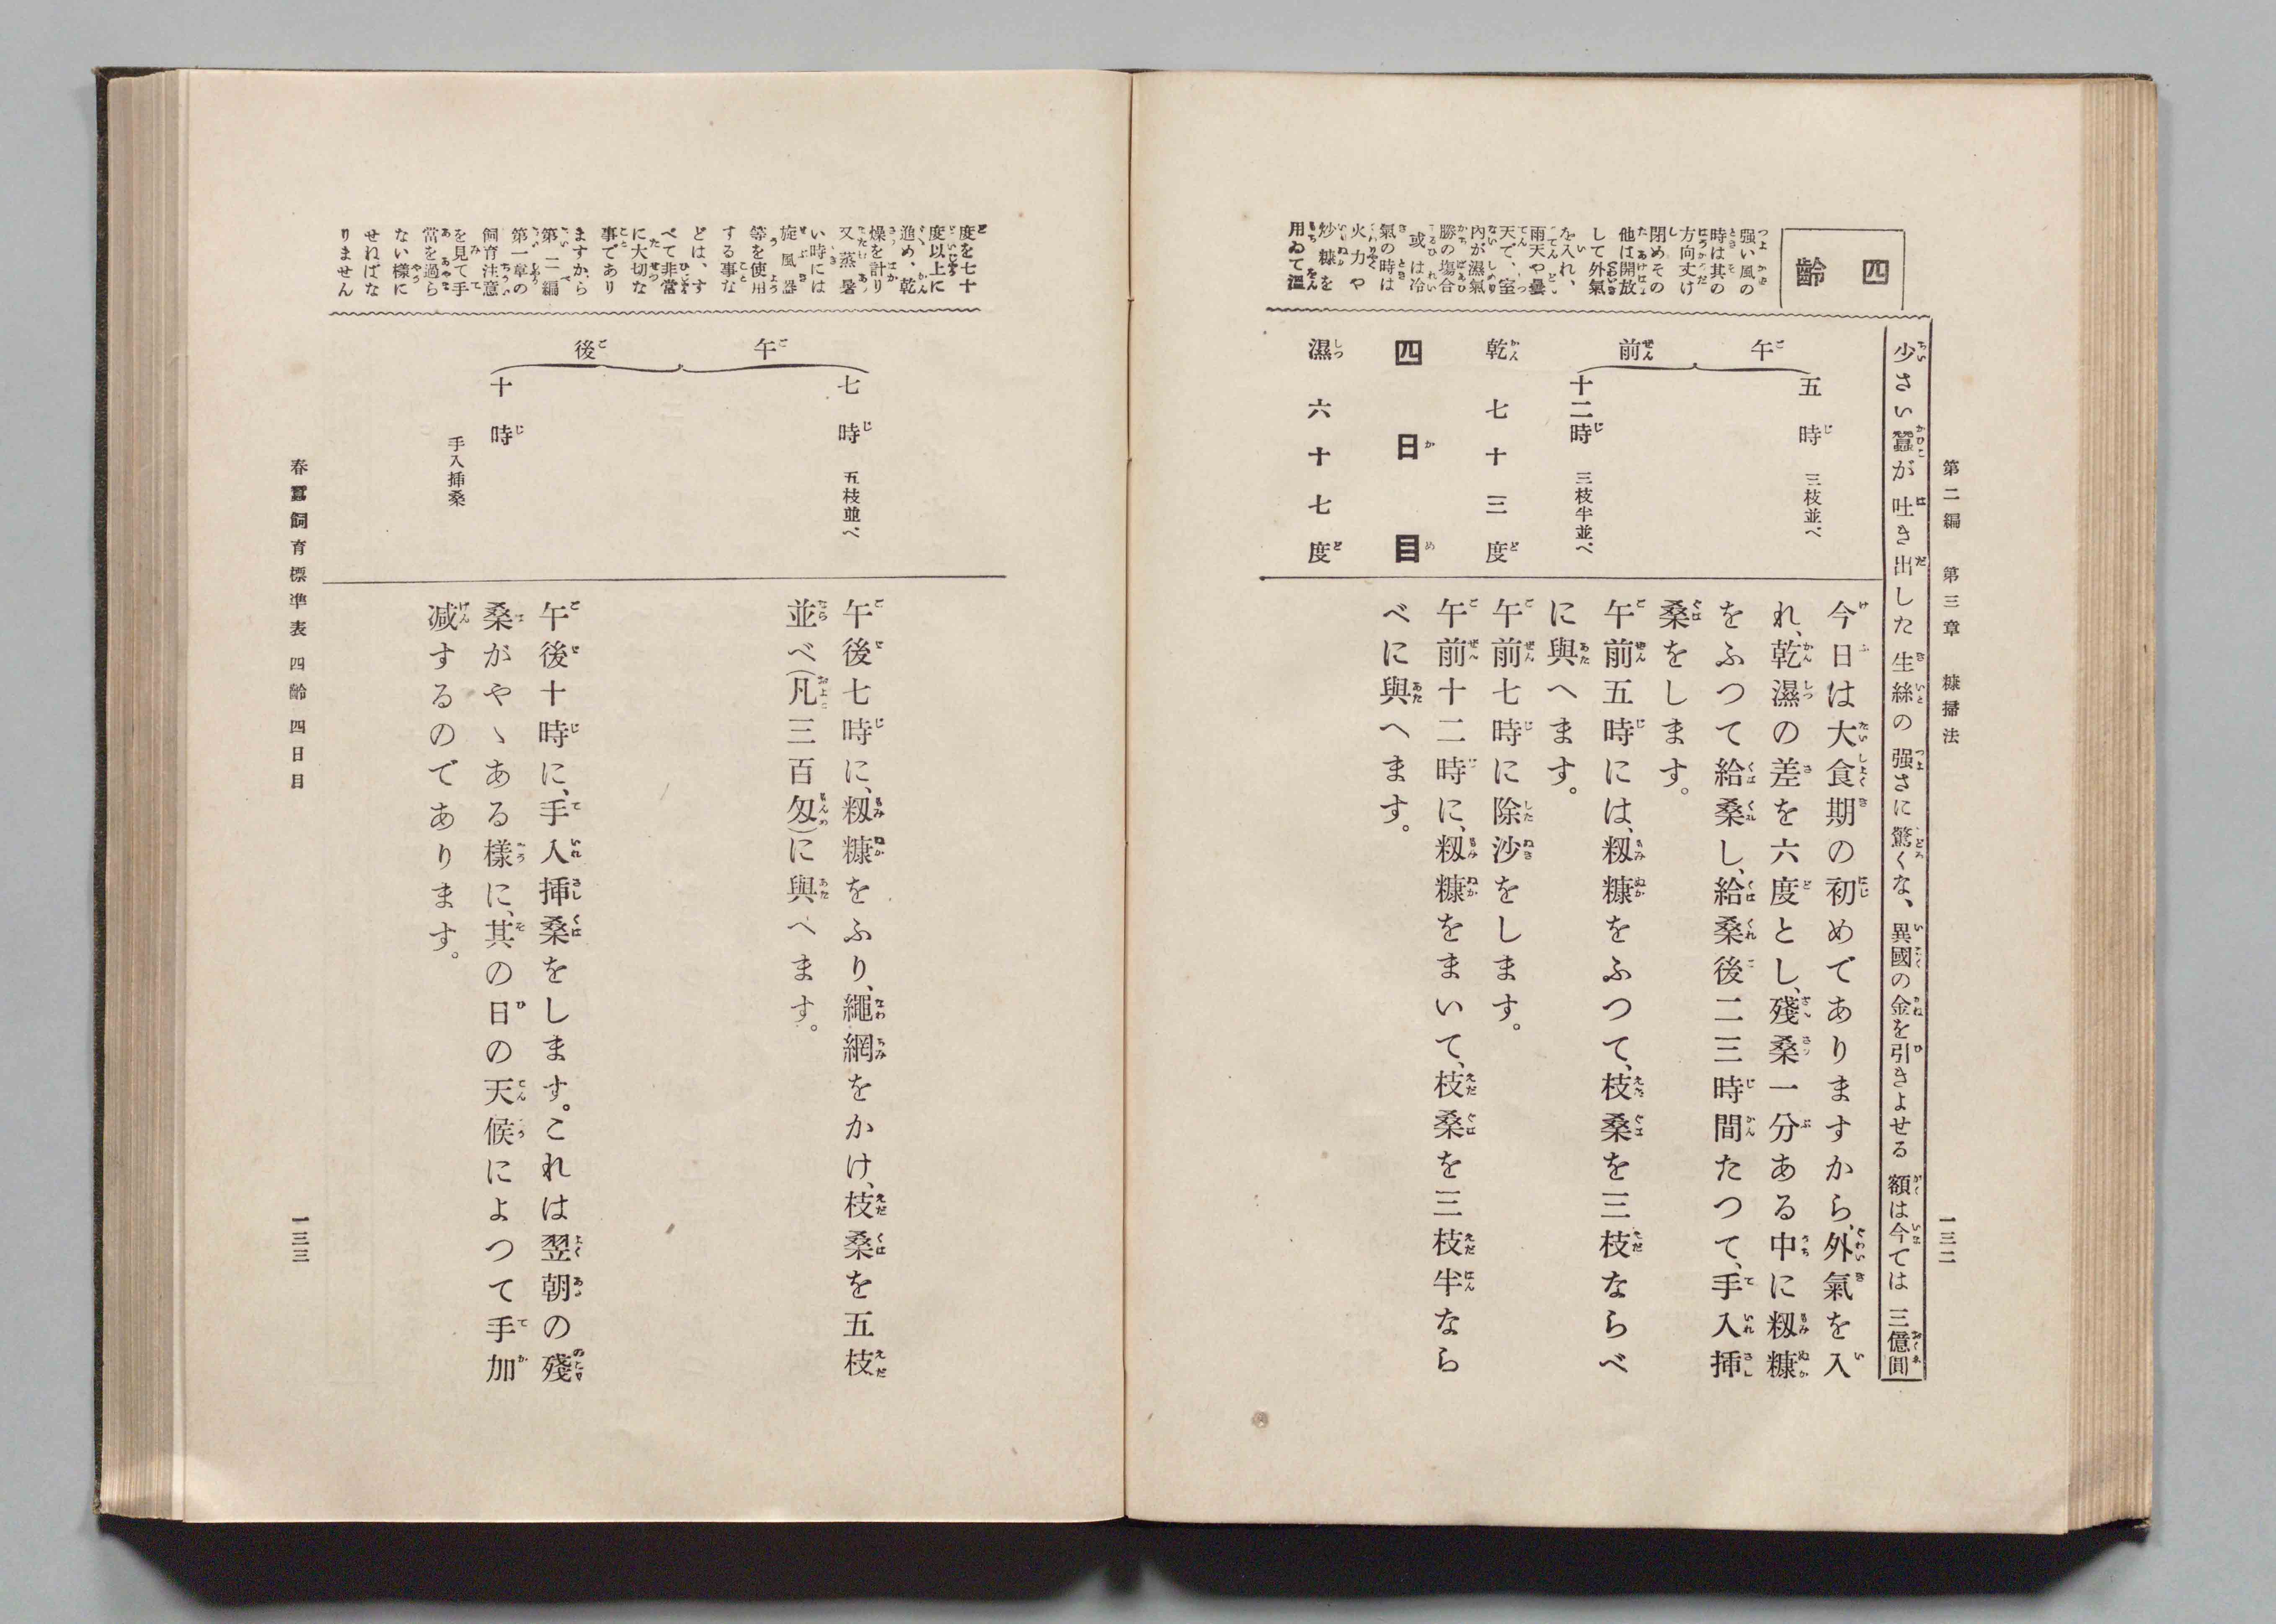 第二編　第三章　糠掃法
一三二
少さい蠶が吐き出した生絲の强さに驚くな、異國の金を引きよせる額は今ては三億圓
四齡
强い風の
時は其の
方向丈け
閉めその
他は開放
して外氣
を入れ、
雨天や曇
天で、室
內が濕氣
勝の塲合
或は冷
氣の時は
火力や
炒糠を
用ゐて溫
午前
五時　三枝並べ
十二時　三枝半並べ
乾　七十三度
四日目
濕　六十七度
今日は大食期の初めでありますから、外氣を入
れ、乾濕の差を六度とし、殘桑一分ある中に籾糠
をふつて給桑し、給桑後二三時間たつて、手入挿
桑をします。
午前五時には、籾糠をふつて、枝桑を三枝ならべ
に與へます。
午前七時に除沙をします。
午前十二時に、籾糠をまいて、枝桑を三枝半なら
べに與へます。
度を七十
度以上に
進め、乾
燥を計り
又蒸暑
い時には
旋風器
等を使用
する事な
どは、す
べて非常
に大切な
事であり
ますから
第二編
第一章の
飼育注意
を見て手
當を過ら
ない樣に
せねばな
りません
午後
七時　五枝並べ
十時
手入挿桑
午後七時に、籾糠をふり、繩網をかけ、枝桑を五枝
並べ(凡三百匁)に與へます。
午後十時に、手入挿桑をします。これは翌朝の殘
桑がやゝある樣に、其の日の天候によつて手加
减するのであります。
春蠶飼育標準表　四齡　四日目
一三三